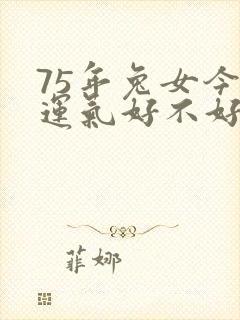 75年兔女今
運氣好不好
菲娜